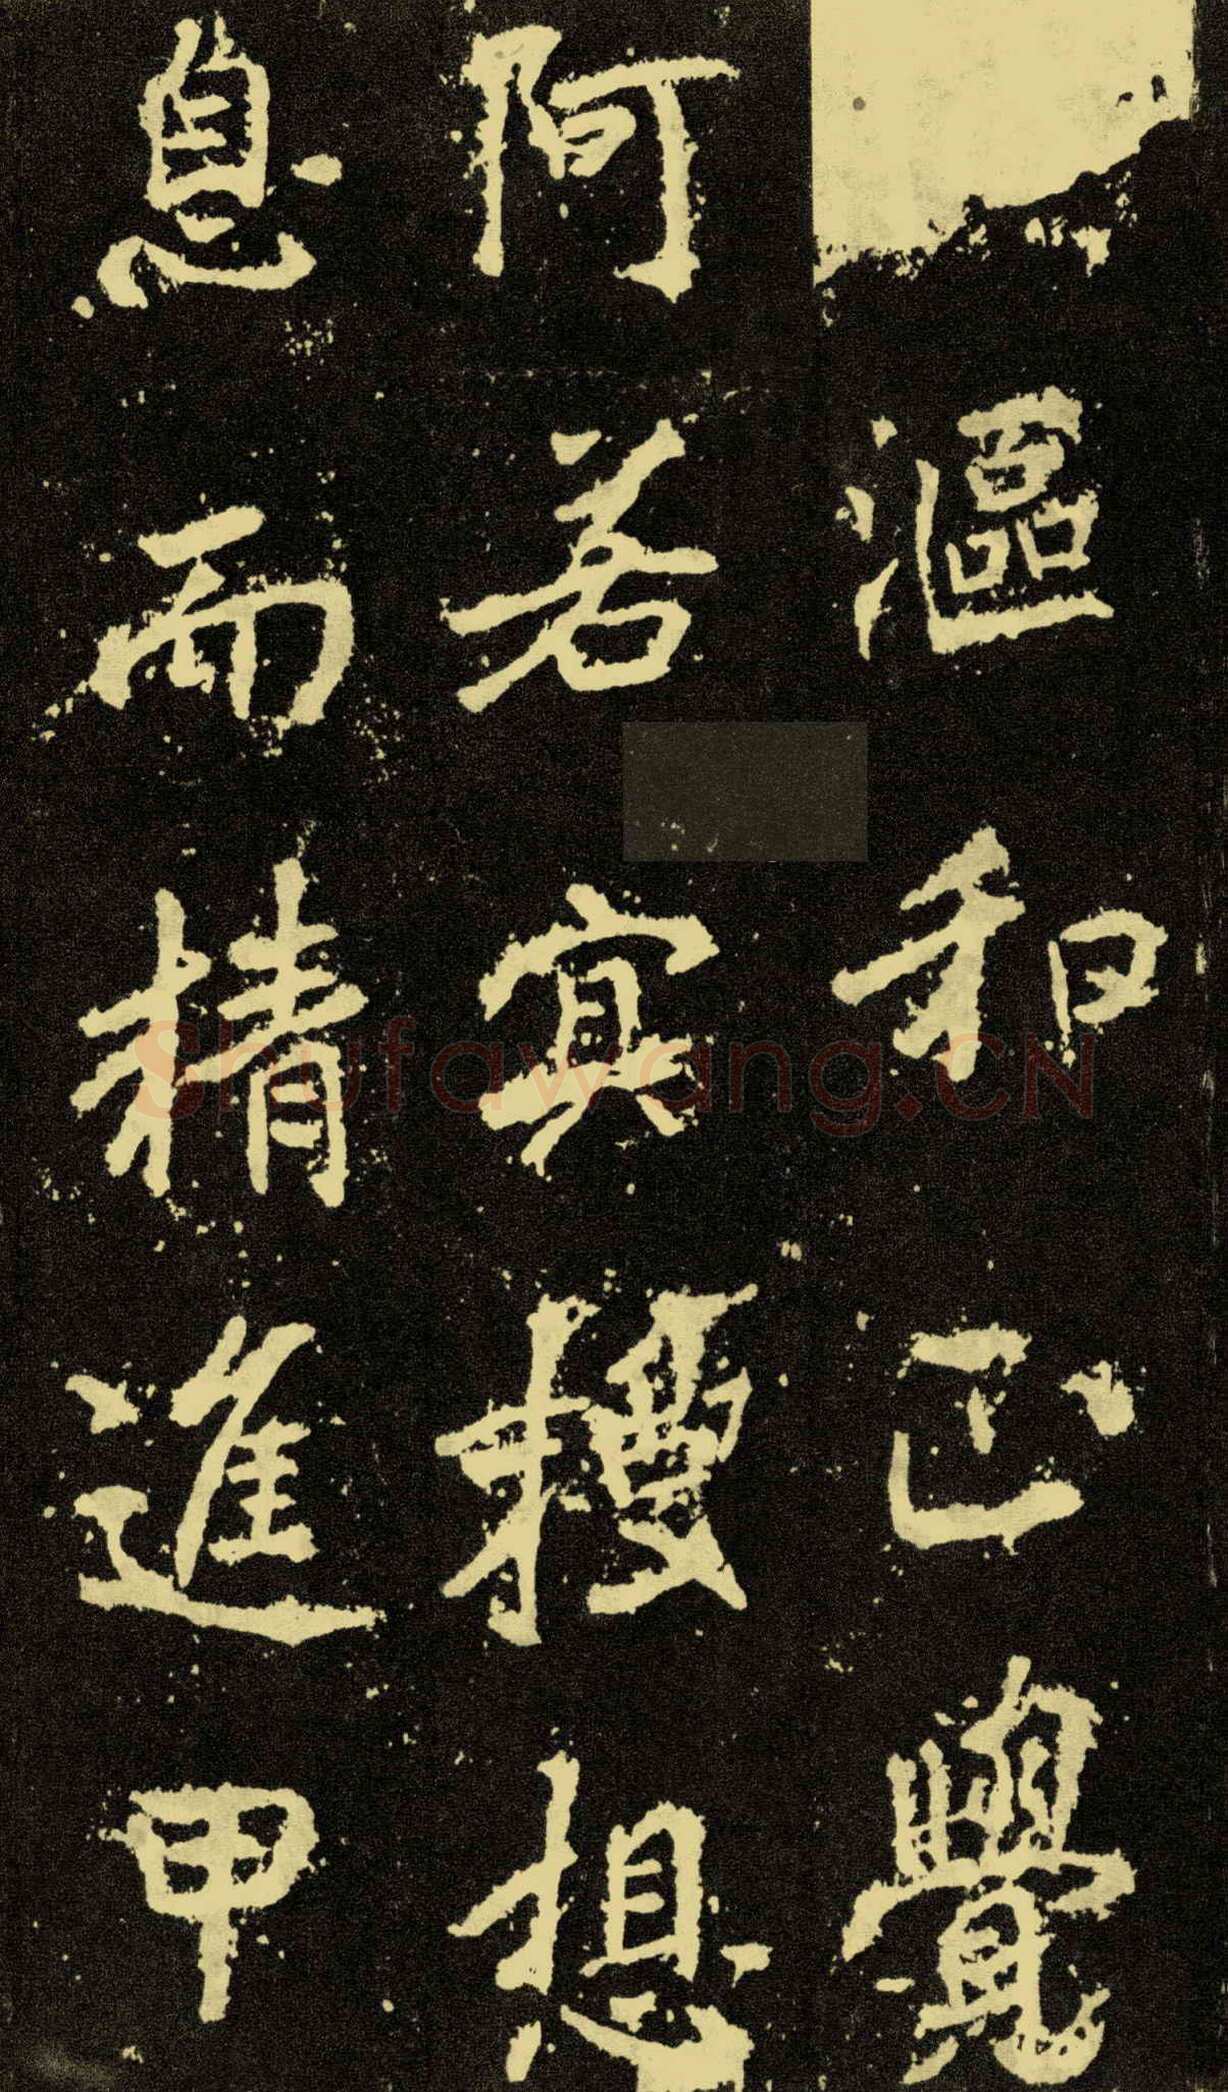 漚和正覺
阿若冥搜想
息而精進甲
Shufawang.CN